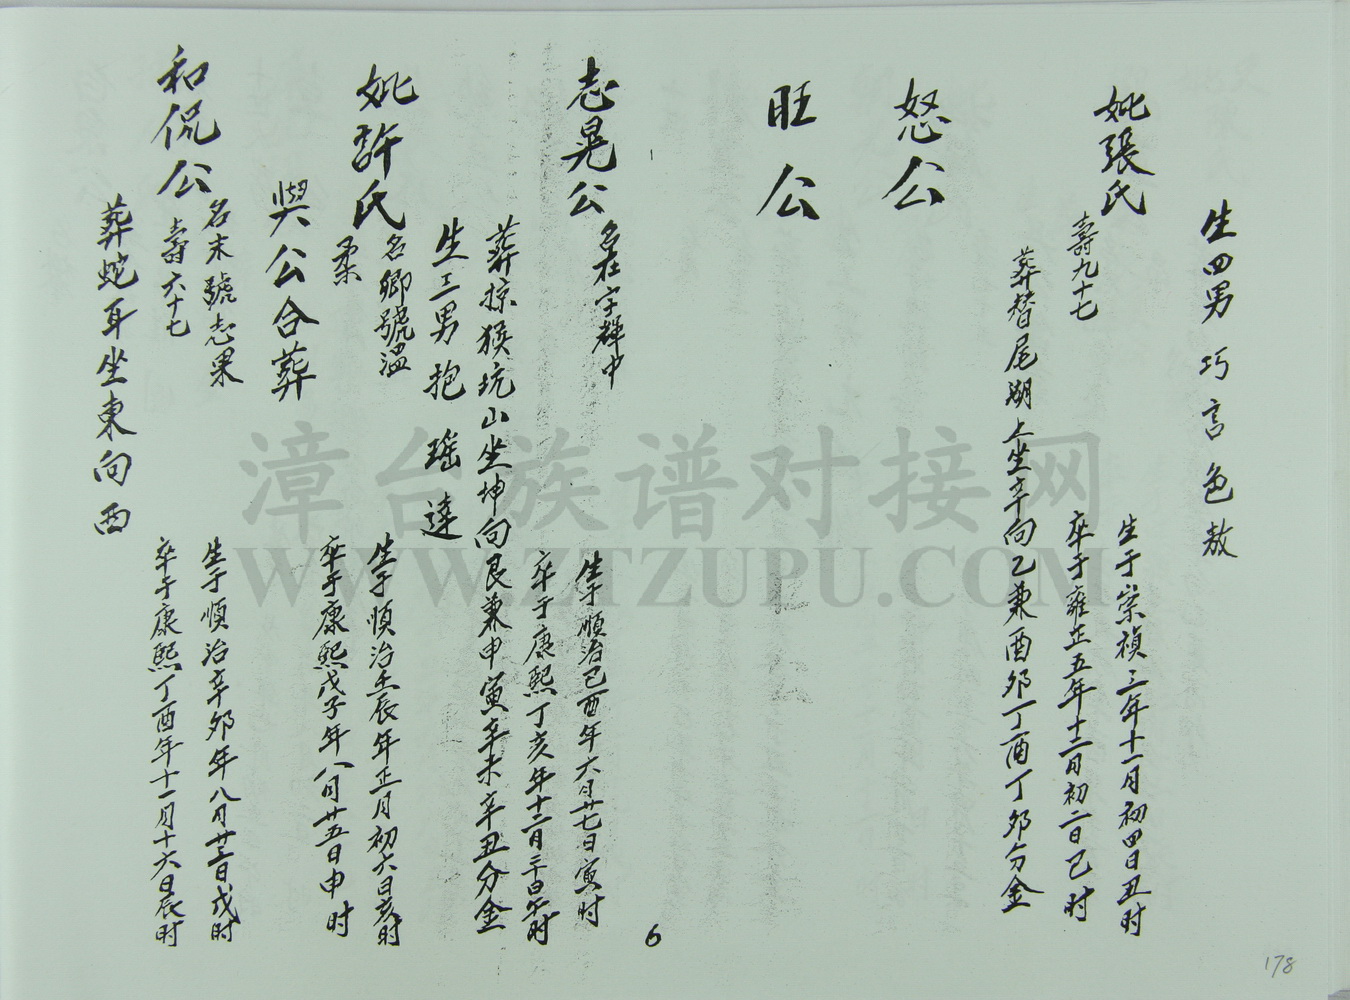 生四男 巧 言 色 敖
妣張氏 壽九十七
生于崇禎三年十一月初四日丑时
卒于雍正五年十二月初二日巳时
葬替尾湖上坐辛向乙兼酉夘丁酉丁夘分金
怒公
旺公
志晃公 名在字輝中
生于順治己酉年六月廿七日寅时
卒于康熙丁亥年十二月三十日午时
葬掠猴坑山坐坤向艮兼申寅辛未辛丑分金
生三男 抱 瑶 達
妣許氏 名卿號温
柔
生于順治壬辰年正月初六日亥时
卒于康熙戊子年八月廿五日申时
與公合葬
和侃公 名末號志果
壽六十七
生于順治辛夘年八月廿三日戌时
卒于康熙丁酉年十一月十六日辰时
葬蛇耳坐東向西
6
178
漳台族谱对接网
WWW.ZTZUPU.COM